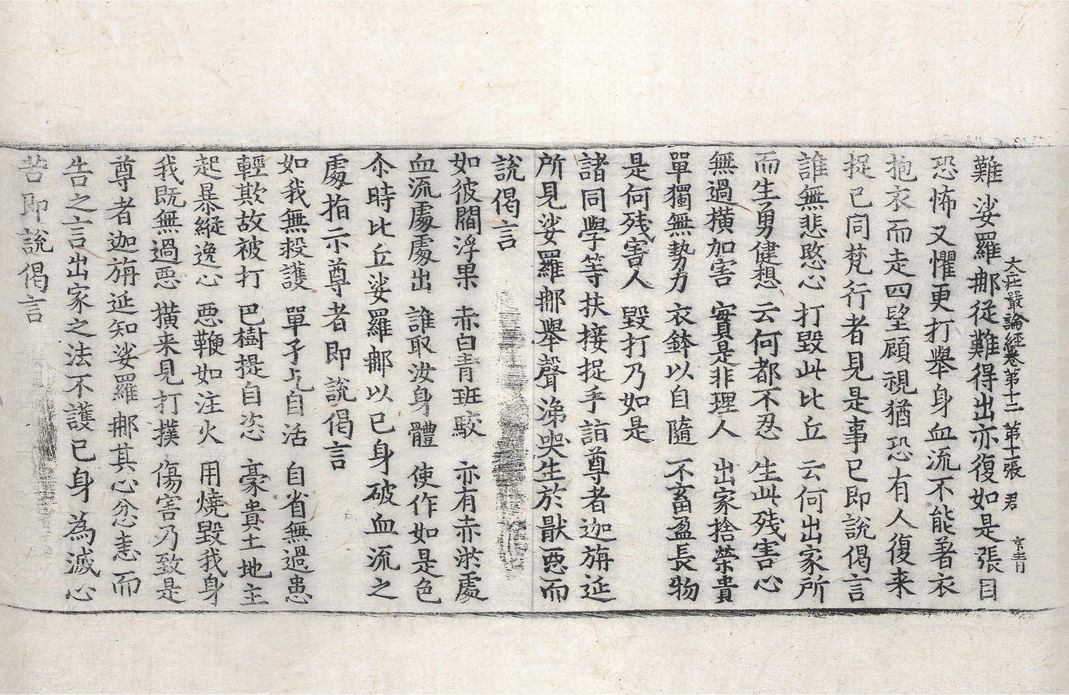 大莊嚴論經卷第十二 第十張 君
難娑羅那從難得出亦復如是張目
恐怖又懼更打舉身血流不能著衣
抱衣而走四望顧視猶恐有人復来
捉已同梵行者見是事已即說偈言
誰無悲愍心 打毀此比丘 云何出家所
而生勇健想 云何都不忍 生此殘害心
無過橫加害 實是非理人 出家捨榮貴
單獨無勢力 衣鉢以自隨 不畜盈長物
是何殘害人 毀打乃如是
諸同學等扶接捉手詣尊者迦旃延
所見娑羅那舉聲涕哭生於猒惡而
說偈言
如彼閻浮果 赤白青班駮 亦有赤淤處
血流處處出 誰取汝身體 使作如是色
尒時比丘娑羅那以已身破血流之
處指示尊者即說偈言
如我無救護 單孑乞自活 自省無過患
輕欺故被打 巴樹提自恣 豪貴土地主
起暴縱逸心 惡鞭如注火 用燒毀我身
我既無過惡 橫来見打撲 傷害乃致是
尊者迦旃延知娑羅那其心忿恚而
告之言出家之法不護已身為滅心
苦即說偈言